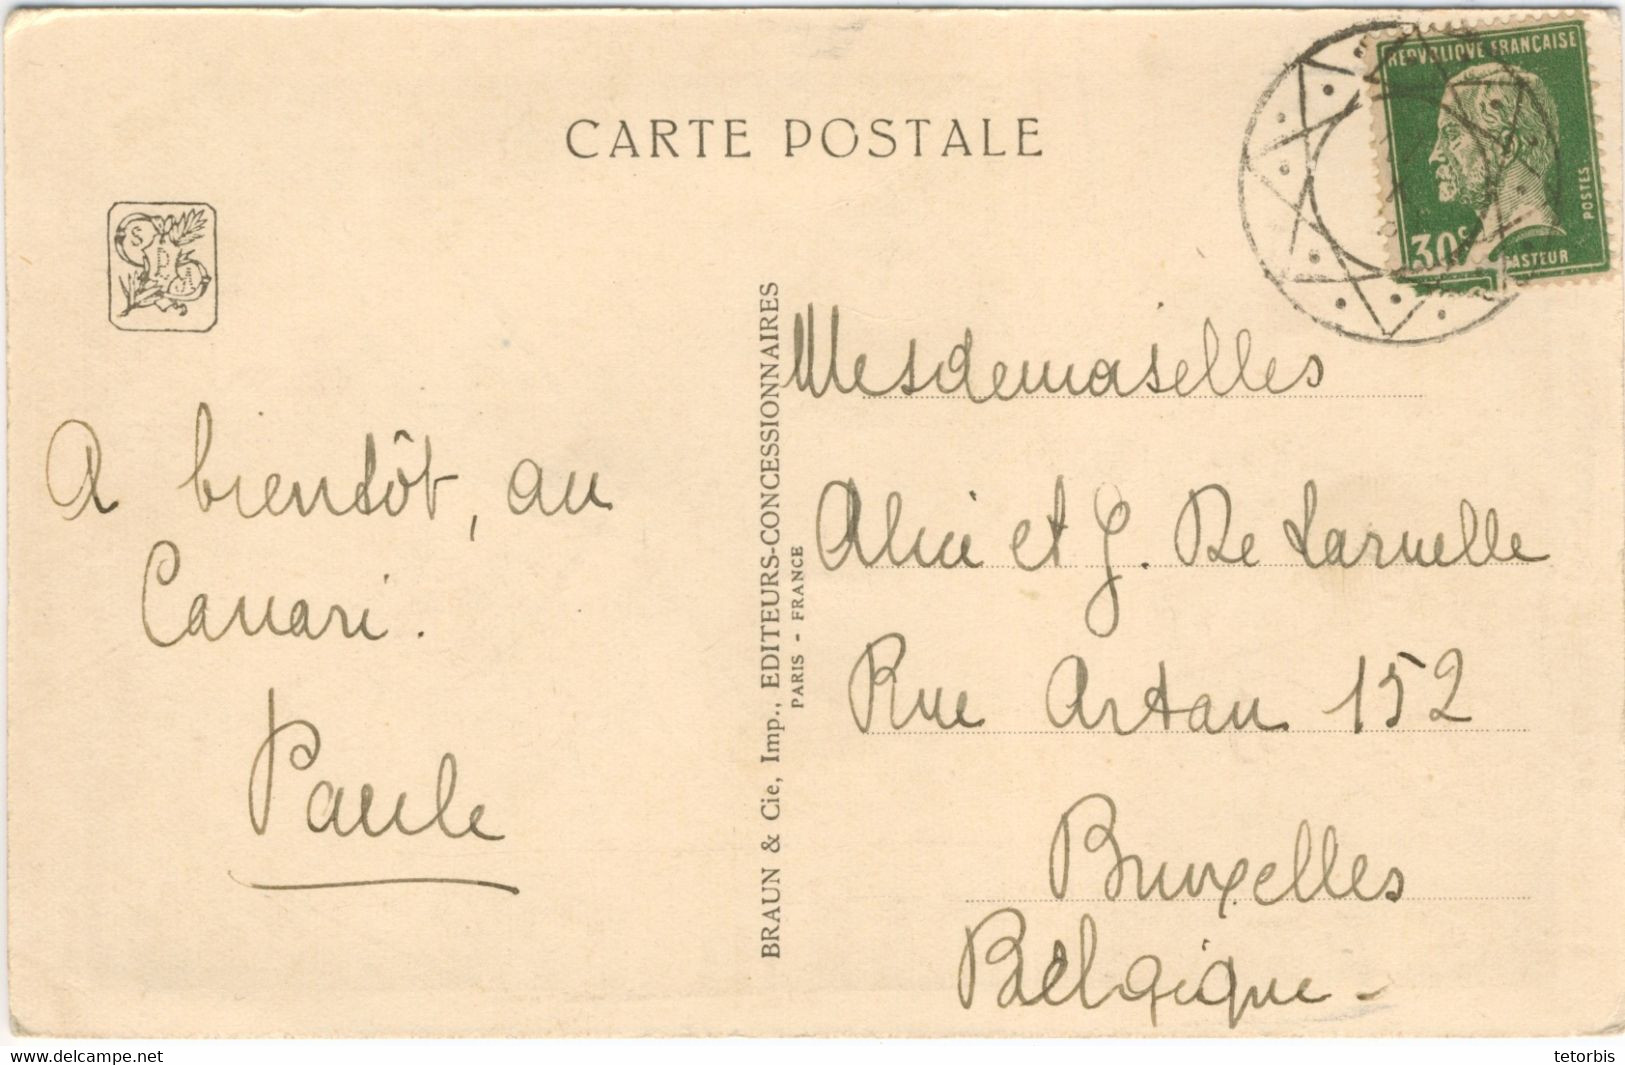 CARTE POSTALE
REPVBLIQVE FRANÇAISE
POSTES
30c
PASTEUR
BRAUN & Cie, Imp., EDITEURS-CONCESSIONNAIRES
PARIS - FRANCE
A bientôt, au
Canari.
Paule
Mesdemoiselles
Alice et J. De Laruelle
Rue Artan 152
Bruxelles
Belgique -
www.delcampe.net
tetorbis